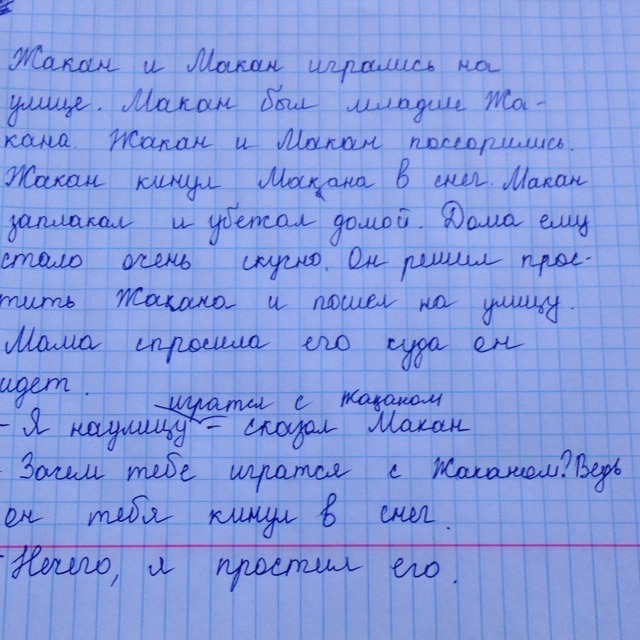 Жакан и Макан игрались на
улице. Макан был младше Жа-
кана. Жакан и Макан поссорились.
Жакан кинул Макана в снег. Макан
заплакал и убежал домой. Дома ему
стало очень скучно. Он решил прос-
тить Жакана и пошел на улицу.
Мама спросила его куда он
идет.
игратся с Жаканом
- Я наулицу - сказал Макан
- Зачем тебе игратся с Жаканом? Ведь
он тебя кинул в снег.
- Нечего, я простил его.